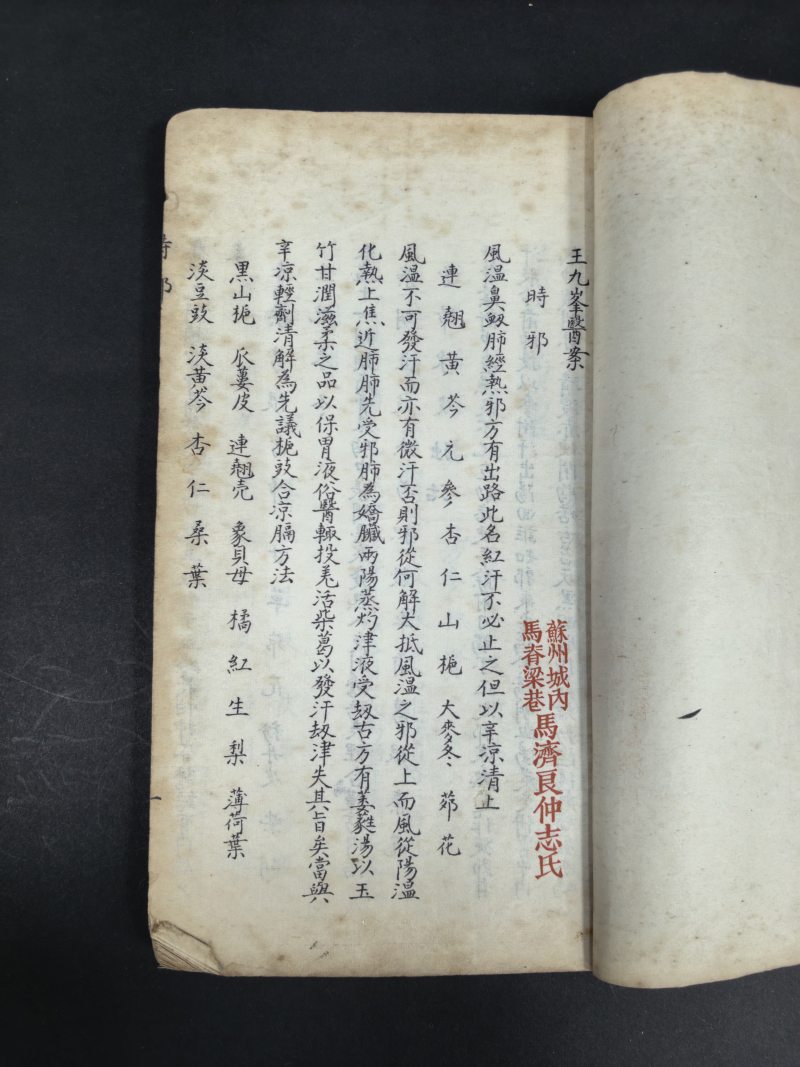 王九峯醫案
時邪
蘇州城內
馬脊梁巷
馬濟良仲志氏
風温鼻衂肺經熱邪方有出路此名紅汗不必止之但以辛凉清上
連翹 黃芩 元參 杏仁 山梔 大麥冬 茆花
風温不可發汗而亦有微汗否則邪從何解大抵風温之邪從上而風從陽温
化熱上焦近肺肺先受邪肺為嬌臟兩陽蒸灼津液受刼古方有葳蕤湯以玉
竹甘潤滋柔之品以保胃液俗醫輒投羗活柴葛以發汗刼津失其旨矣當與
辛凉輕劑清解為先議梔豉合凉膈方法
黑山梔 瓜蔞皮 連翹壳 象貝母 橘紅 生梨 薄荷葉
淡豆豉 淡黃芩 杏仁 桑葉
時邪
一